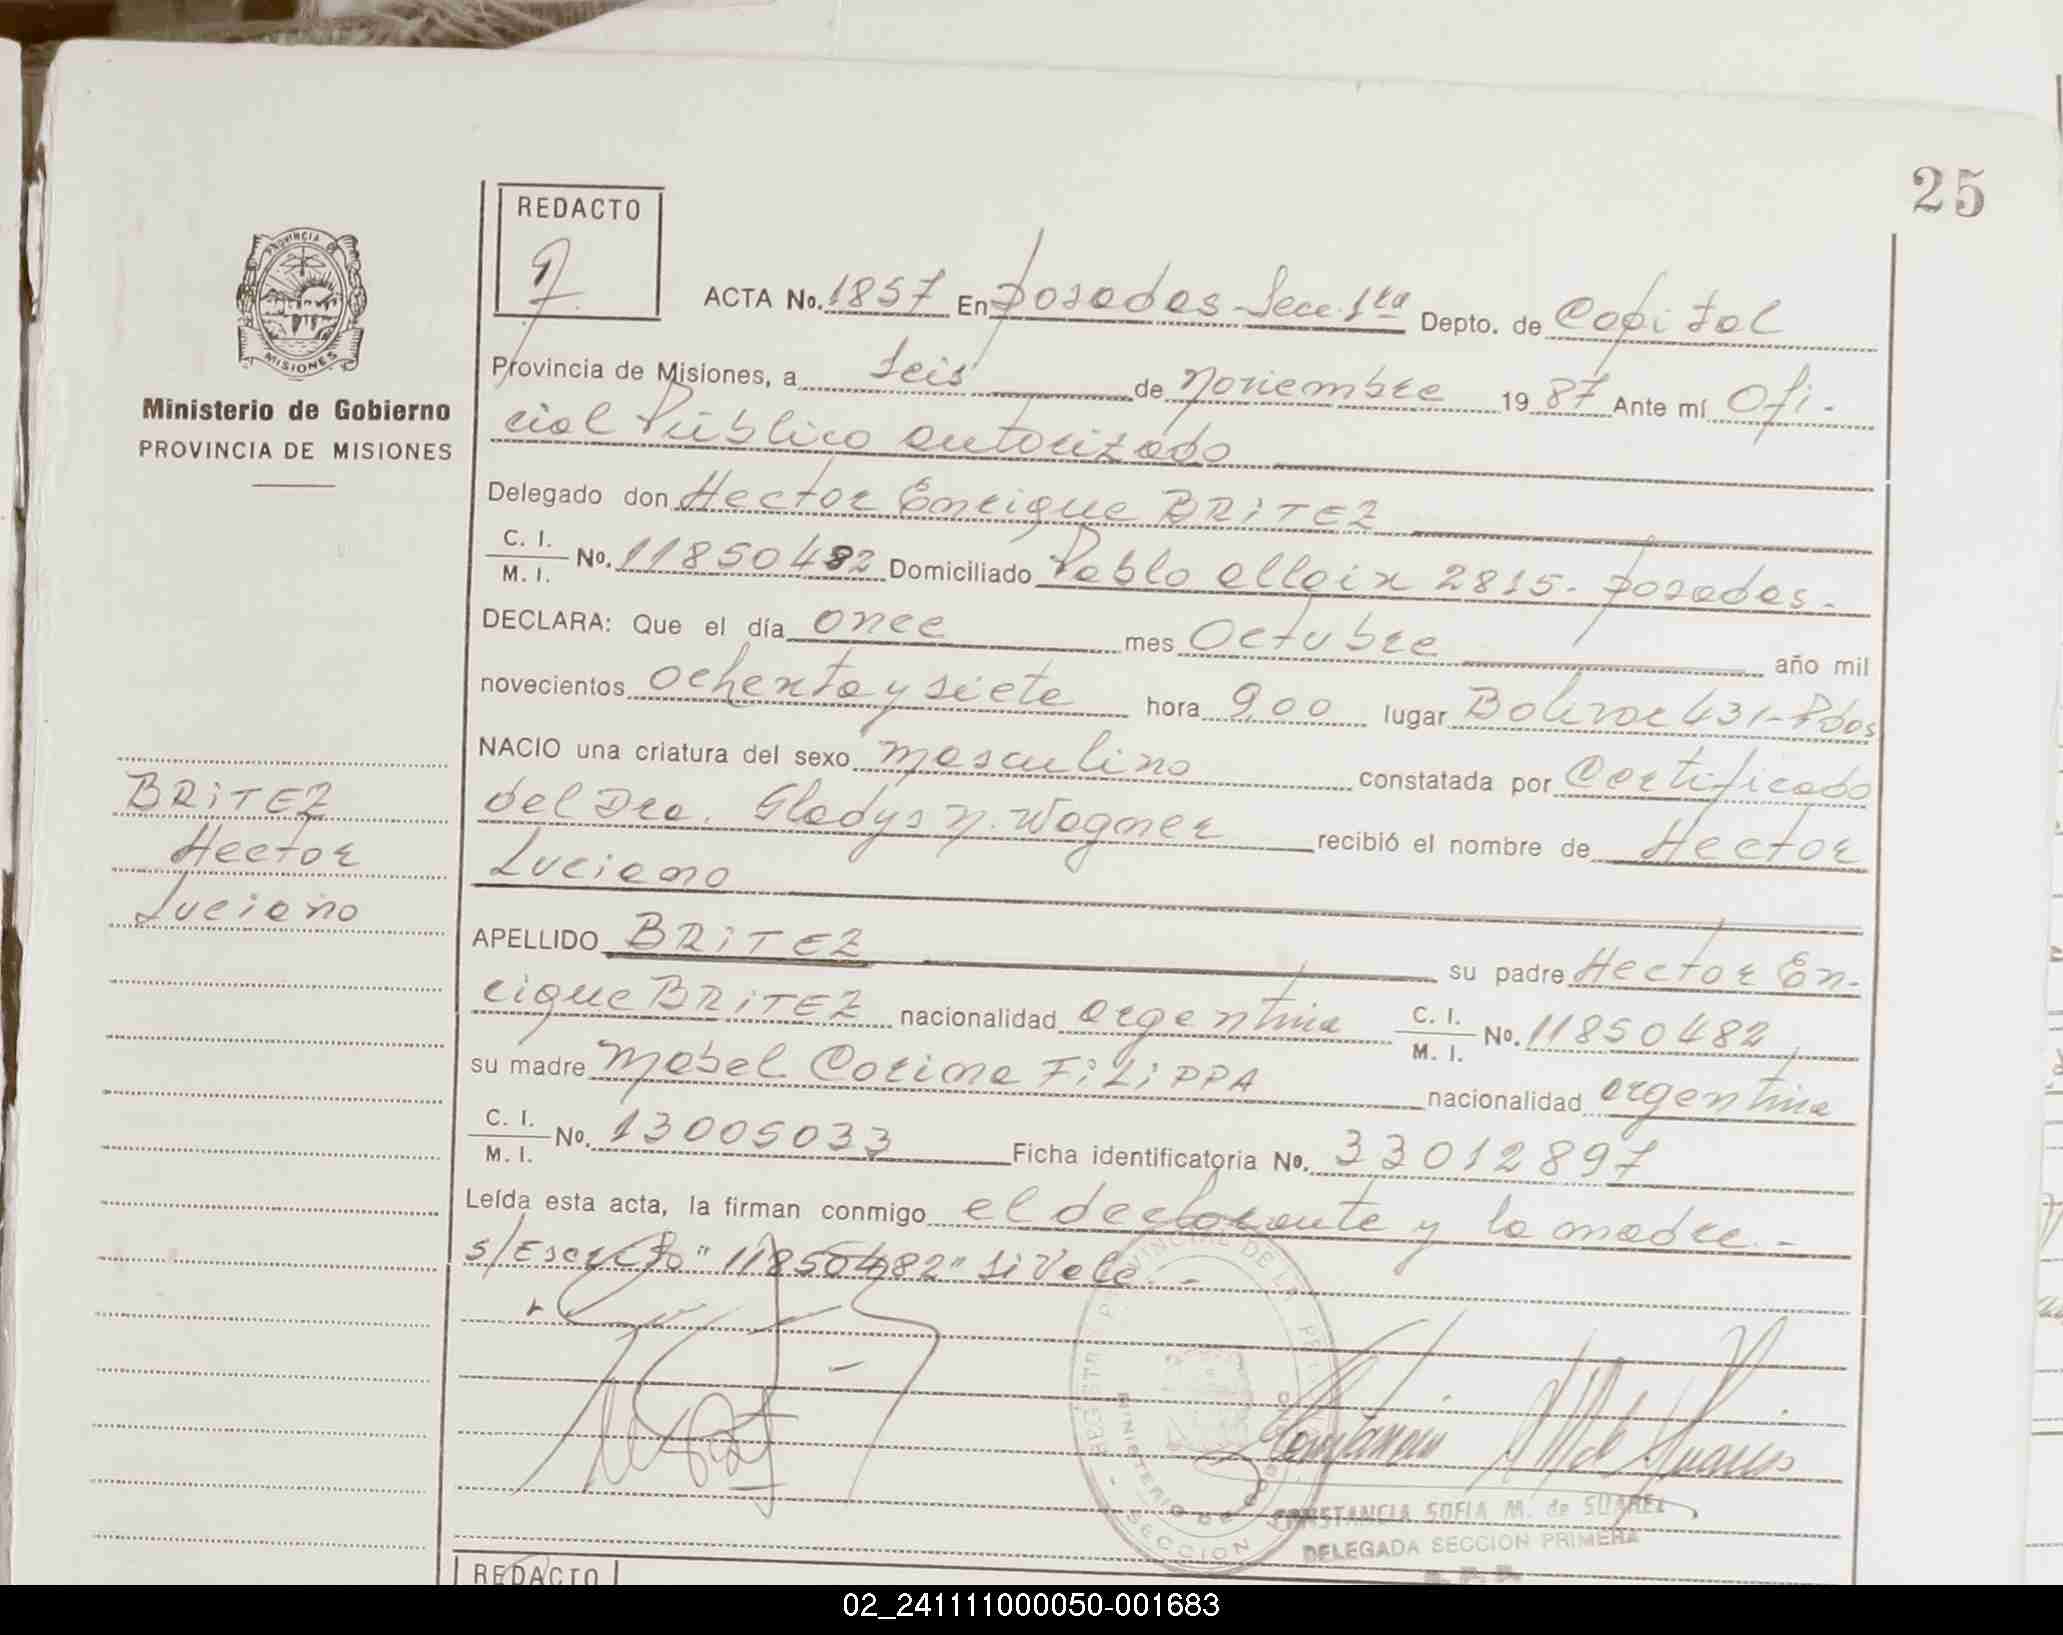 25
REDACTO
PROVINCIA DE
MISIONES
Ministerio de Gobierno
PROVINCIA DE MISIONES
BRiTEZ
Hector
Luciano
ACTA No. 1857 En Posadas-Secc. 1ra Depto. de Capital
Provincia de Misiones, a seis de noviembre 1987 Ante mí Ofi-
cial Público autorizado
Delegado don Hector Enrique BRiTEZ
C. I.
M. I. No. 11850482 Domiciliado Pablo Allaix 2815. Posadas.
DECLARA: Que el día once mes Octubre año mil
novecientos ochenta y siete hora 900 lugar Bolivar 431-Pdas
NACIO una criatura del sexo masculino constatada por Certificado
del Dra. Gladys N. Wagner recibió el nombre de Hector
Luciano
APELLIDO BRiTEZ su padre Hector En-
rique BRiTEZ nacionalidad argentina C. I.
M. I. No. 11850482
su madre Mabel Corina FiLiPPA nacionalidad argentina
C. I.
M. I. No. 13005033 Ficha identificatoria No. 33012897
Leída esta acta, la firman conmigo el declarante y la madre.-
s/Escrito "11850482" si Vale.-
CONSTANCIA SOFIA M. de SUAREZ
DELEGADA SECCION PRIMERA
REDACTO
02_241111000050-001683